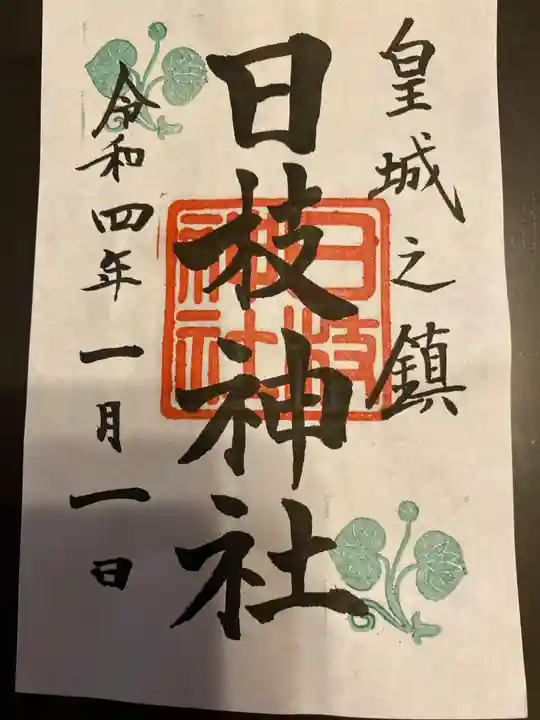 皇城之鎮
日枝神社
日枝
神社
令和四年一月一日